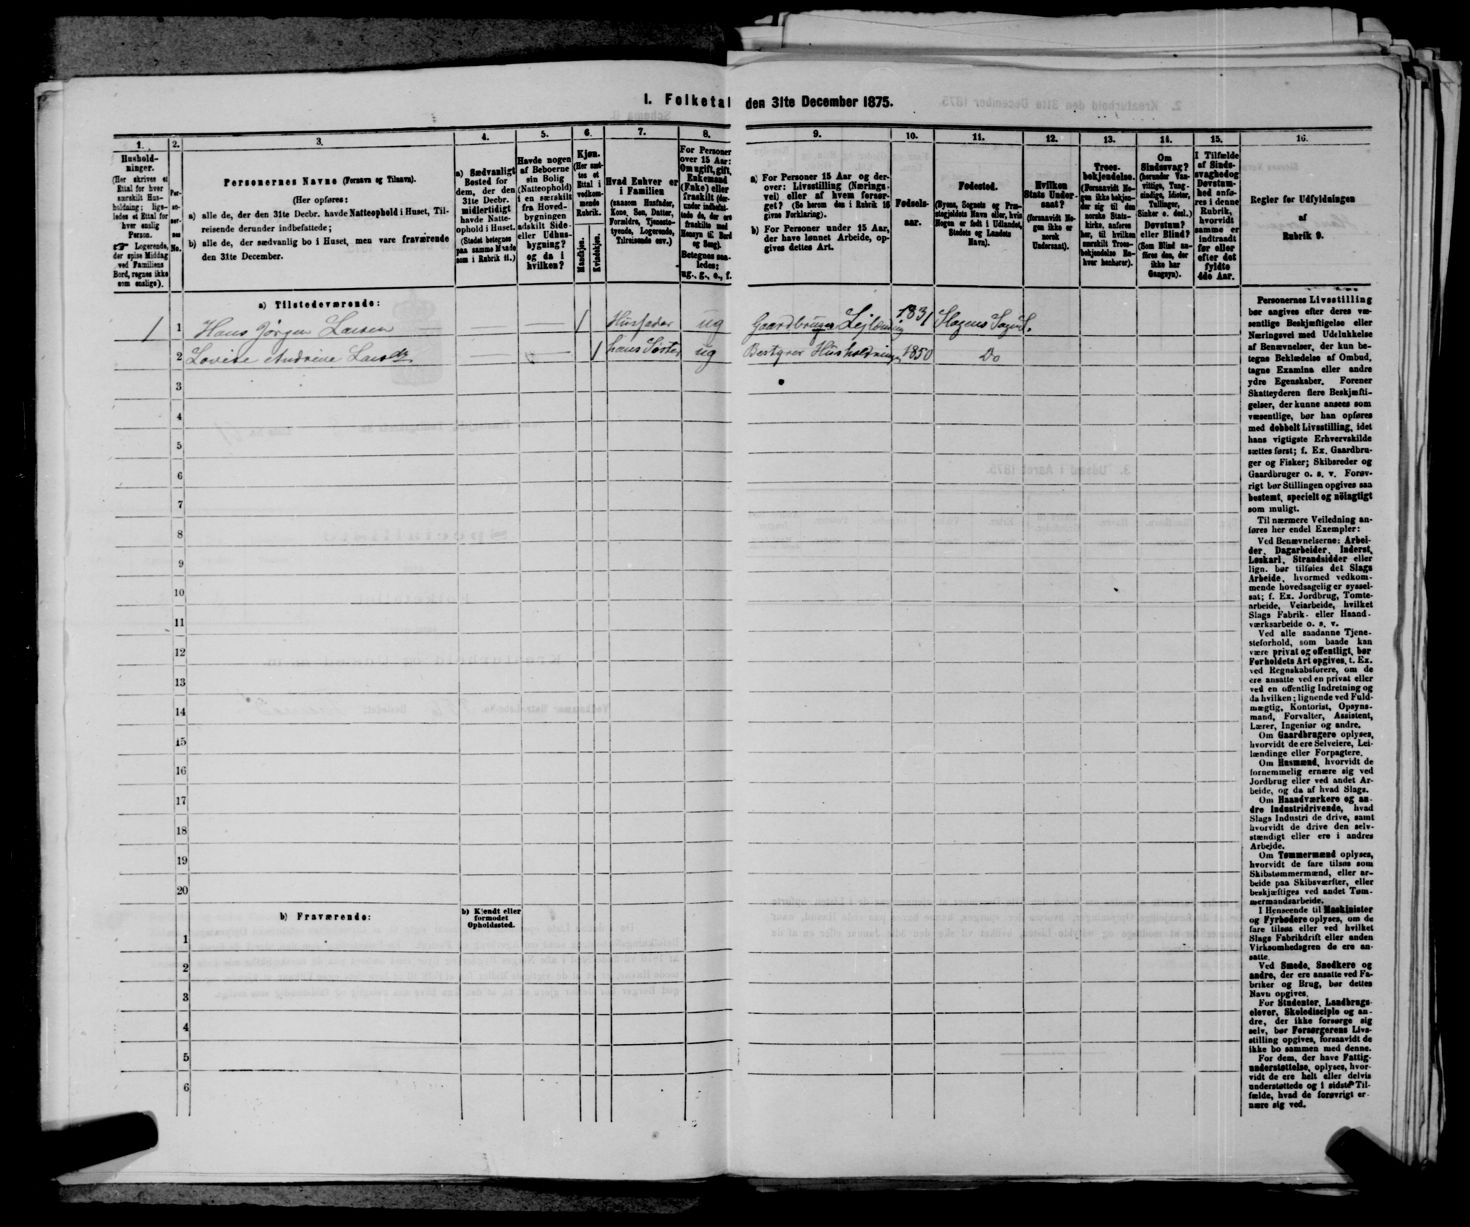 I. Folketal den 31te December 1875.
1. 2. 3. 4. 5. 6. 7. 8. 9. 10. 11. 12. 13. 14. 15. 16.
Husholdninger.
(Her skrives et
Ettal for hver
særskilt Husholdning; ligeledes et Ettal for
hver enslig
Person.
☞ Logerende,
der spise Middag
ved Familiens
Bord, regnes ikke
som enslige).
Personernes Navne (Fornavn og Tilnavn).
(Her opføres:
a) alle de, der den 31te Decbr. havde Natteophold i Huset, Tilreisende derunder indbefattede;
b) alle de, der sædvanlig bo i Huset, men vare fraværende
den 31te December.
a) Sædvanligt
Bosted for
dem, der den
31te Decbr.
midlertidigt
havde Natteophold i Huset.
(Stedet betegnes
paa samme Maade
som i Rubrik 11.)
Havde nogen
af Beboerne
sin Bolig
(Natteophold)
i en særskilt
fra Hovedbygningen
adskilt Side-
eller Udhusbygning?
og da i
hvilken?
Kjøn.
(Her sættes et
Ettal i
vedkommende
Rubrik.
Mandkjøn.
Kvindekjøn.
Hvad Enhver er
i Familien
(saasom Husfader,
Kone, Søn, Datter,
Forældre, Tjenestetyende, Logerende,
Tilreisende osv.)
For Personer
over 15 Aar:
Om ugift, gift,
Enkemand
(Enke) eller
fraskilt
Betegnes saaledes:
ug., g., e., f.
a) For Personer 15 Aar og derover: Livsstilling (Næringsvei) eller af hvem forsørget? (Se herom den i Rubrik 16
givne Forklaring).
b) For Personer under 15 Aar,
der have lønnet Arbeide, opgives dettes Art.
Fødselsaar.
Fødested.
(Byens, Sognets og Præstegjeldets Navn eller, hvis
Nogen er født i Udlandet,
Stedets og Landets
Navn).
Hvilken
Stats Undersaat?
(forsaavidt Nogen ikke er
norsk
Undersaat).
Troesbekjendelse.
(Forsaavidt Nogen ikke bekjender sig til den
norske Statskirke, anføres
her, til hvilken
særskilt Troesbekjendelse Enhver henhører).
Om
Sindssvag?
(herunder Vanvittige, Tungsindige, Idioter,
Tullinger,
Sinker o. desl.)
Døvstum?
eller Blind?
(Som Blind anføres den, der
ikke har
Gangsyn).
I Tilfælde
af Sindssvaghed og
Døvstumhed anføres i denne
Rubrik,
hvorvidt
samme er
indtraadt
før eller
efter det
fyldte
4de Aar.
Regler for Udfyldningen
af
Rubrik 9.
a) Tilstedeværende:
1 1 Hans Jørgen Larsen 1 Husfader ug Gaardbruger Leilænding 1831 Slagens Sogn
2 Lovise Andrine Larsdr 1 hans Søster ug Bestyrer Husholdningen 1850 Do
3
4
5
6
7
8
9
10
11
12
13
14
15
16
17
18
19
20
b) Fraværende:
b) Kjendt eller
formodet
Opholdssted.
1
2
3
4
5
6
Personernes Livsstilling
bør angives efter deres væsentlige Beskjæftigelse eller
Næringsvei med Udelukkelse
af Benævnelser, der kun betegne Beklædelse af Ombud,
tagne Examina eller andre
ydre Egenskaber. Forener
Skatteyderen flere Beskjæftigelser, der kunne ansees som
væsentlige, bør han opføres
med dobbelt Livsstilling, idet
hans vigtigste Erhvervskilde
sættes først; f. Ex. Gaardbruger og Fisker; Skibsreder og
Gaardbruger o. s. v. Forøvrigt bør Stillingen opgives saa
bestemt, specielt og nøiagtigt
som muligt.
Til nærmere Veiledning anføres her endel Exempler:
Ved Benævnelserne: Arbeider, Dagarbeider, Inderst,
Løskarl, Strandsidder eller
lign. bør tilføies det Slags
Arbeide, hvormed vedkommende hovedsagelig er sysselsat; f. Ex. Jordbrug, Tomtearbeide, Veiarbeide, hvilket
Slags Fabrik- eller Haandværksarbeide o. s. v.
Ved alle saadanne Tjenesteforhold, som baade kan
være privat og offentligt, bør
Forholdets Art opgives, t. Ex.
ved Regnskabsførere, om de
ere ansatte ved en privat eller
ved en offentlig Indretning og
da hvilken; lignende ved Fuldmægtig, Kontorist, Opsynsmand, Forvalter, Assistent,
Lærer, Ingeniør og andre.
Om Gaardbrugere oplyses,
hvorvidt de ere Selveiere, Leilændinge eller Forpagtere.
Om Husmænd, hvorvidt de
fornemmelig ernære sig ved
Jordbrug eller ved andet Arbeide, og da af hvad Slags.
Om Haandværkere og andre Industridrivende, hvad
Slags Industri de drive, samt
hvorvidt de drive den selvstændigt eller ere i andres
Arbejde.
Om Tømmermænd oplyses,
hvorvidt de fare tilsøs som
Skibstømmermænd, eller arbeide paa Skibsværfter, eller
beskjæftiges ved andet Tømmermandsarbeide.
I Henseende til Maskinister
og Fyrbødere oplyses, om de
fare tilsøs eller ved hvilket
Slags Fabrikdrift eller anden
Virksomhedsgren de ere ansatte.
Ved Smede, Snedkere og
andre, der ere ansatte ved Fabriker og Brug, bør dettes
Navn opgives.
For Studenter, Landbrugselever, Skoledisciple og andre, der ikke forsørge sig
selv, bør Forsørgerens Livsstilling opgives, forsaavidt de
ikke bo sammen med denne.
For dem, der have Fattigunderstøttelse, oplyses, hvorvidt de ere helt eller delvis
understøttede og i sidste Tilfælde, hvad de forøvrigt ernære sig ved.